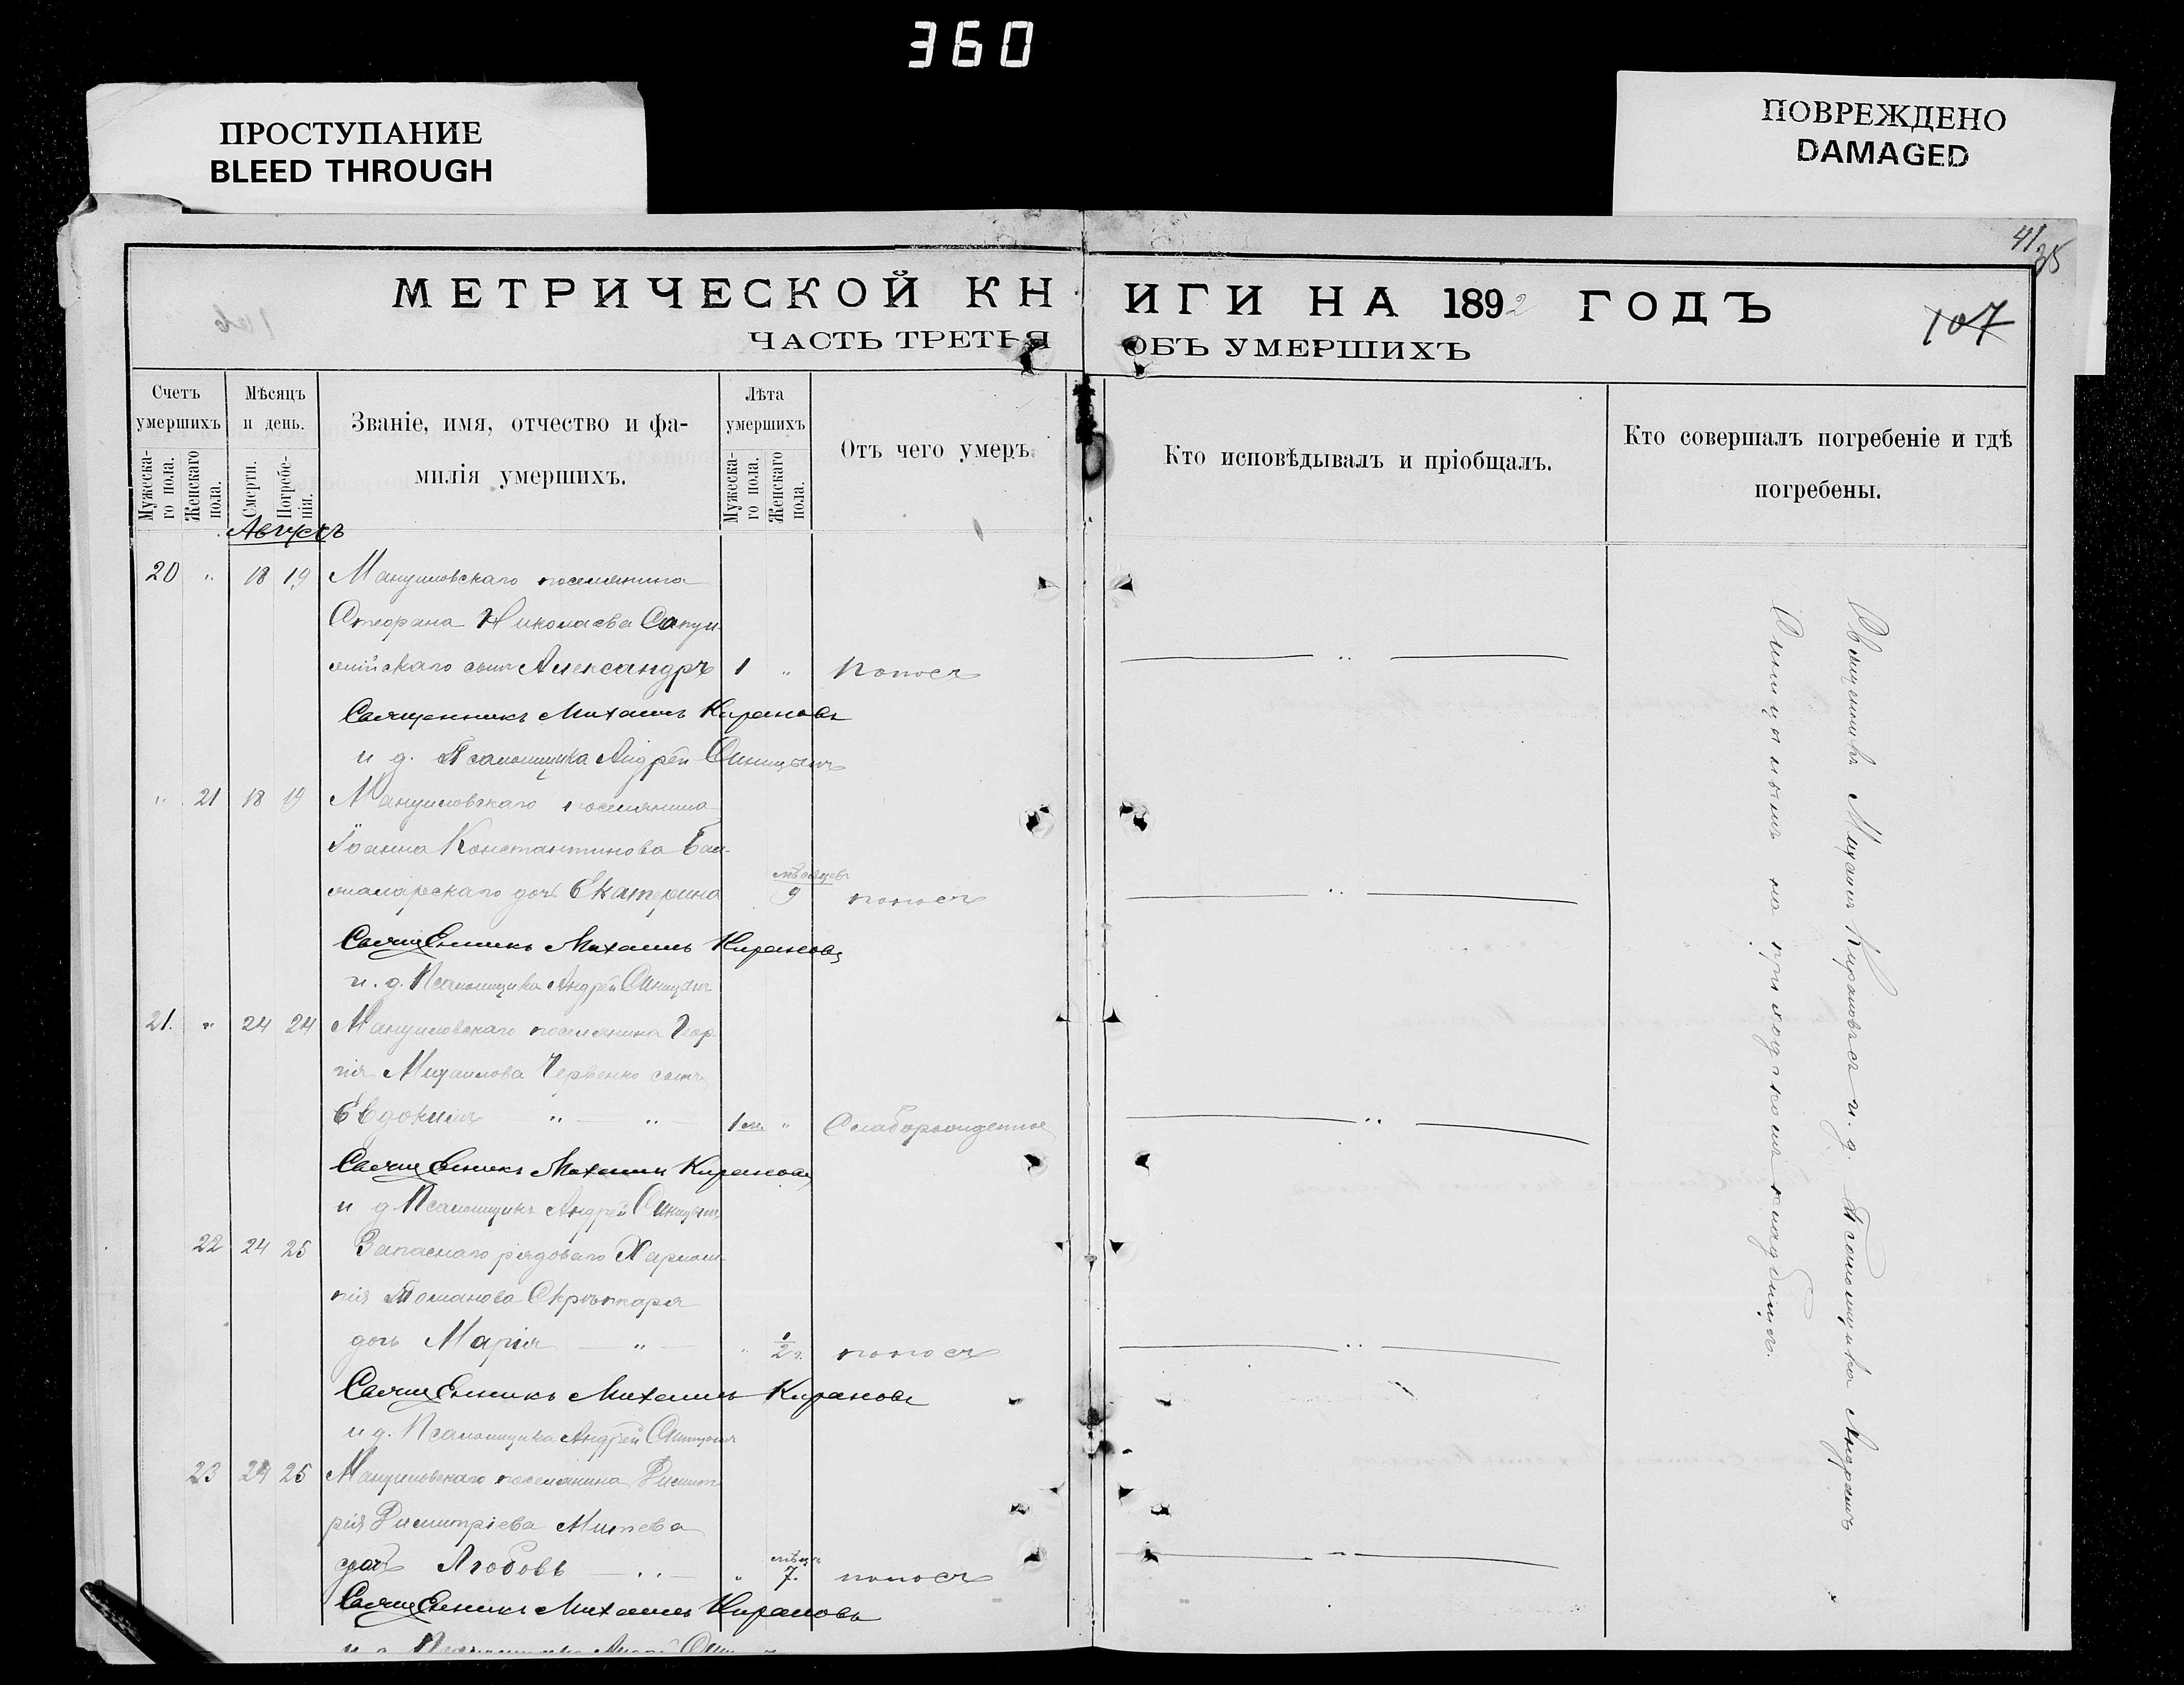 360
ПРОСТУПАНИЕ
BLEED THROUGH
ПОВРЕЖДЕНО
DAMAGED
41/35
107
МЕТРИЧЕСКОЙ КНИГИ НА 1892 ГОДЪ
ЧАСТЬ ТРЕТЬЯ ОБЪ УМЕРШИХЪ
Счетъ умершихъ
Мужеска-го пола.
Женскаго пола.
Мѣсяцъ и день.
Смерти.
Погребе-нія.
Званіе, имя, отчество и фа-
милія умершихъ.
Лѣта умершихъ
Мужеска-го пола.
Женскаго пола.
Отъ чего умеръ.
Кто исповѣдывалъ и пріобщалъ.
Кто совершалъ погребеніе и гдѣ
погребены.
Августъ
20 " 18 19 Мануиловскаго поселянина
Стефана Николаева Сапун-
скаго сынъ Александръ 1 " Поносъ — " —
Священникъ Михаилъ Кирановъ
и д. Псаломщика Андрей Синицынъ
" 21 18 19 Мануиловскаго поселянина
Іоанна Константинова
дочь Екатерина мѣсяцевъ 9 поносъ — " —
Священникъ Михаилъ Кирановъ
и. д. Псаломщика Андрей Синицынъ
21. " 24 24 Мануиловскаго поселянина Геор-
гія Михаилова Червенко сынъ
Евдокимъ — " — " — 1 м. " Слаборожденное — " —
Священникъ Михаилъ Кирановъ
и д Псаломщикъ Андрей Синицынъ
22 24 25 Запаснаго рядоваго Харлам-
пія Томанова
дочь Марія — " — " 1/2 г. поносъ — " —
Священникъ Михаилъ Кирановъ
и д. Псаломщика Андрей Синицынъ
23 24 25 Мануиловскаго поселянина Димит-
рія Димитріева Митева
дочь Любовь — " — " мѣсц. 7. поносъ — " —
Священникъ Михаилъ Кирановъ
и д Псаломщика Андрей
Священникъ Михаилъ Кирановъ съ и. д. Псаломщика Андреемъ
Синицынымъ на приходскомъ кладбищѣ.